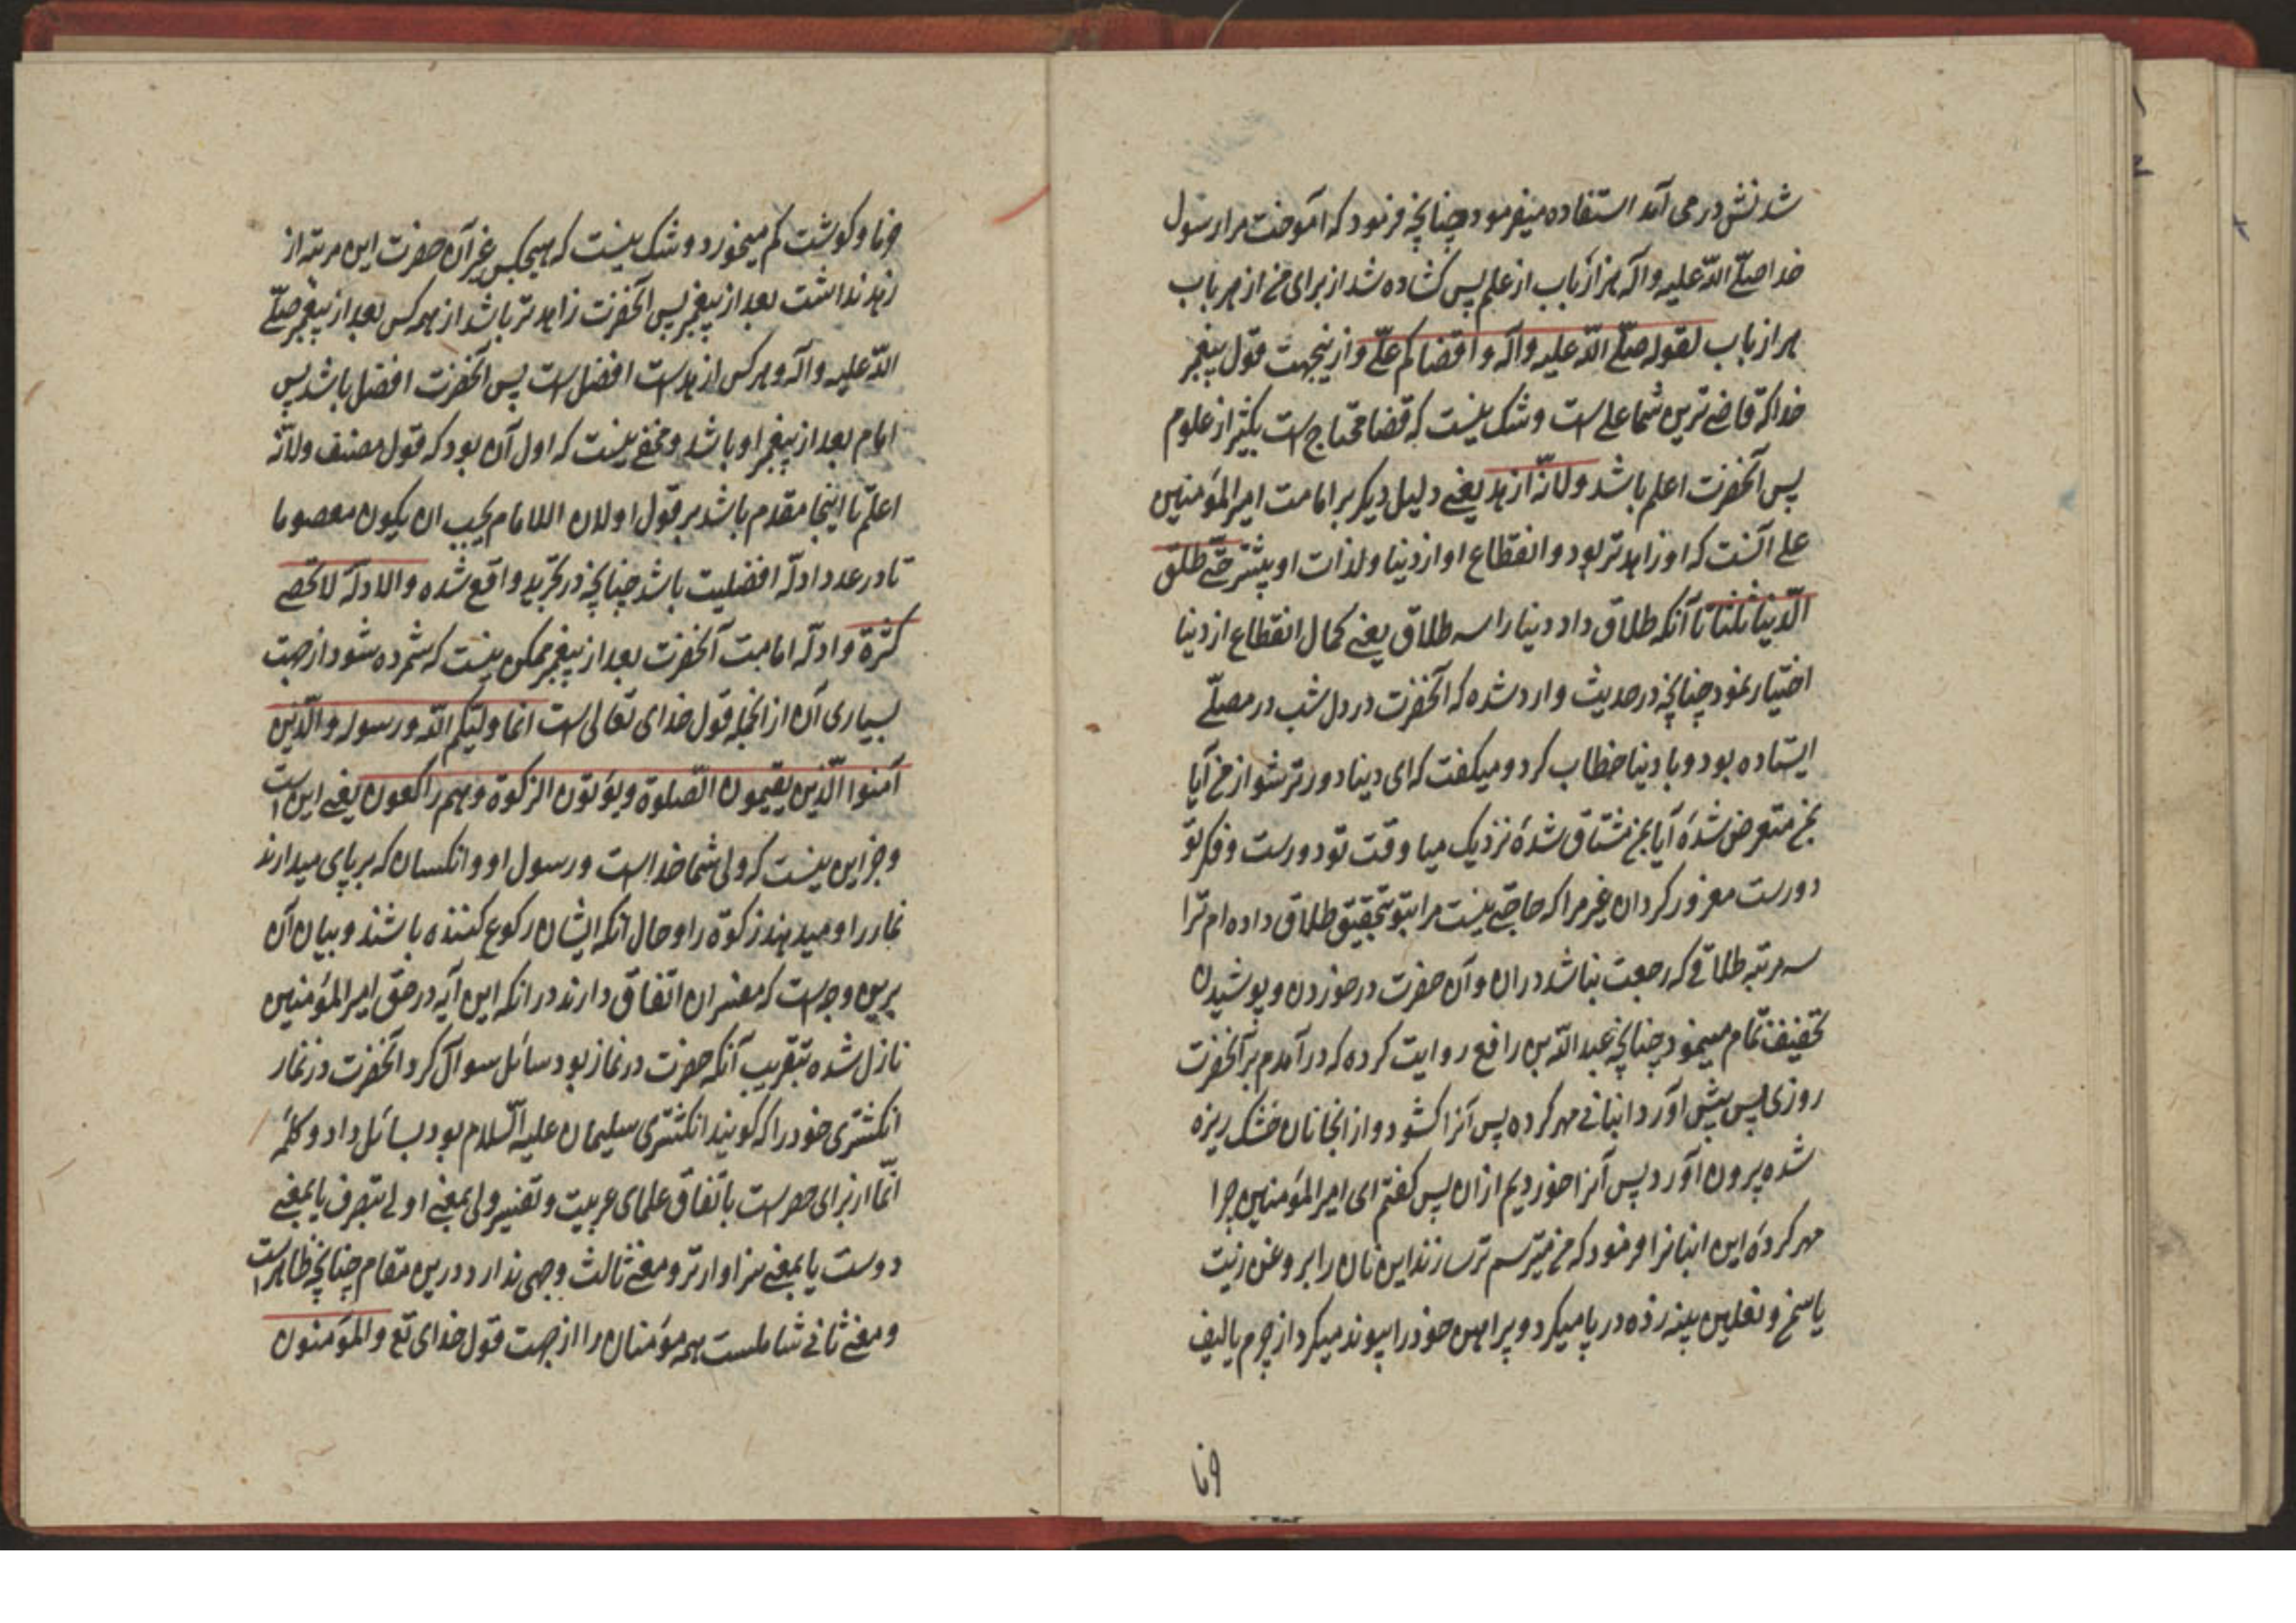 شدنش در می آمد استفاده میفرمود چنانچه فرمود که آموخت مرا رسول
خدا صلّے اللّه علیه وآله هزار باب از علم پس کشاده شد از برای من از هر باب
هزار باب لقوله صلّے اللّه علیه وآله واقضاکم علّے وازینجهت قول پیغمبر
خدا که قاضے ترین شما علے است وشک نیست که قضا محتاج است بکثیر از علوم
پس آنحضرت اعلم باشد ولانّه ازهد یعنے دلیل دیکر بر امامت امیرالمؤمنین
علے آنست که او زاهدتر بود وانقطاع او از دنیا ولذات او بیشتر حتّے طلّق
الدّنیا ثلثا تا آنکه طلاق داد دنیا را سه طلاق یعنے کمال انقطاع از دنیا
اختیار نمود چنانچه در حدیث وارد شده که آنحضرت در دل شب در مصلّے
ایستاده بود وبا دنیا خطاب کرد ومیکفت که ای دنیا دورتر شو از من آیا
بمن متعرض شدهٔ آیا بمن مشتاق شدهٔ نزدیک میا وقت تو دورست وفکر تو
دورست مغرور کردان غیر مرا که حاجتے نیست مرا بتو بتحقیق طلاق داده ام ترا
سه مرتبه طلاقے که رجعت نباشد دران وآن حضرت در خوردن وپوشیدن
تخفیف تمام مینمود چنانچه عبداللّه بن رافع روایت کرده که در آمدم بر آنحضرت
روزی پس پیش آورد انبانے مهر کرده پس آنرا کشود واز انجا نان خشک ریزه
شده بیرون آورد پس آنرا خوردیم ازان پس کفتم ای امیرالمؤمنین چرا
مهر کردهٔ این انبانرا فرمود که من میترسم تر سازند این نان را بروغن زیت
یا سمن ونعلین پینه زده در پا میکرد وپیراهن خود را پیوند میکرد از چرم یا لیف
خرما
خرما وکوشت کم میخورد وشک نیست که هیچکس غیر آن حضرت این مرتبه از
زهد نداشت بعد از پیغمبر پس آنحضرت زاهدتر باشد از همه کس بعد از پیغمبر صلّے
اللّه علیه وآله وهر کس ازهد است افضل است پس آنحضرت افضل باشد پس
امام بعد از پیغمبر او باشد ومخفے نیست که اول آن بود که قول مصنف ولانّه
اعلم تا اینجا مقدم باشد بر قول او لان الامام یجب ان یکون معصوما
تا در عداد ادلّه افضلیت باشد چنانچه در تجرید واقع شده والادلّه لاتحصے
کثرة وادلّه امامت آنحضرت بعد از پیغمبر ممکن نیست که شمرده شود از جهت
بسیاری آن از انجمله قول خدای تعالی است انما ولیّکم اللّه ورسوله والّذین
آمنوا الّذین یقیمون الصّلوة ویؤتون الزکوة وهم راکعون یعنے این است
وجز این نیست که ولی شما خداست ورسول او وانکسان که بر پای میدارند
نماز را ومیدهند زکوة را وحال آنکه ایشان رکوع کننده باشند وبیان آن
برین وجه است که مفسران اتفاق دارند در انکه این آیه در حق امیرالمؤمنین
نازل شده بتقریب آنکه حضرت در نماز بود سائل سوال کرد آنحضرت در نماز
انکشتری خود را که کویند انکشتری سلیمان علیه السّلام بود بسائل داد وکلمهٔ
انّما از برای حصر است باتفاق علمای عربیت وتفسیر ولی بمعنے اولے بتصرف یا بمعنے
دوست یا بمعنے سزاوارتر ومعنے ثالث وجهی ندارد درین مقام چنانچه ظاهر است
ومعنے ثانے شاملست همه مؤمنان را از جهت قول خدای تع والمؤمنون